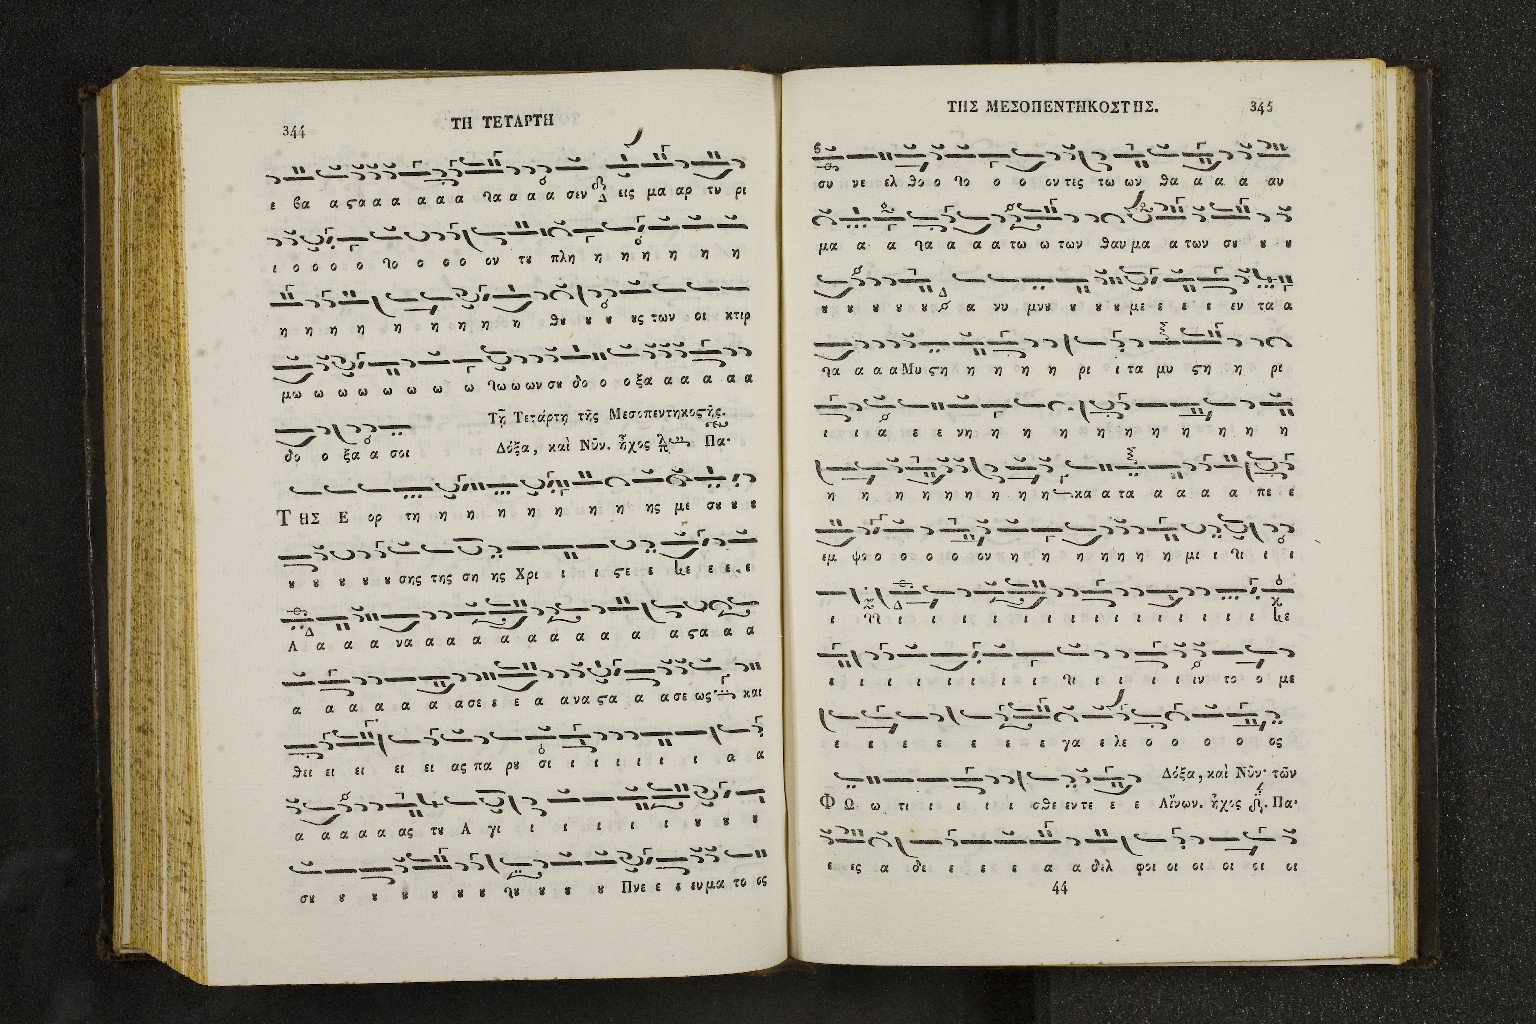 344
ΤΗ ΤΕΤΑΡΤΗ
ε βα α ϛα α α α α α α α α σεν Δ εις μα αρ τυ ρι
ι ο ο ο ο ο ο ο ον τȣ πλη η η η η η η
η η η η η η η η η θȣ ȣ ȣ ȣς των οι κτιρ
μω ω ω ω ω ω ω ω ω ων σȣ δο ο ο ξα α α α α α
Τῇ Τετάρτη τῆς Μεσοπεντηκοϛῆς.
δο ο ξα α σοι
Δόξα, καὶ Νῦν. ἦχος Πα·
ΤΗΣ Ε ορ τη η η η η η η η ης με σȣ ȣ ȣ
ȣ ȣ ȣ ȣ ȣ σης της ση ης Χρι ι ι ϛε ε ε ε ε ε
Α α α α να α α α α α α α α α ϛα α α
α α α α α α ασε ε ε ε α να ϛα α α σε ως και
θει ει ει ει ει ας πα ρȣ σι ι ι ι ι ι α α
α α α α α ας τȣ Α γι ι ι ι ι ι ι ȣ ȣ ȣ
σȣ ȣ ȣ ȣ ȣ ȣ ȣ ȣ ȣ ȣ Πνε ε ε ευμα το ος
ΤΗΣ ΜΕΣΟΠΕΝΤΗΚΟΣΤΗΣ.
345
συ νε ελ θο ο ο ο ο οντες τω ων θα α α α αυ
μα α α α α α α τω ω των θαυμα α των σȣ ȣ ȣ
ȣ ȣ ȣ ȣ ȣ ȣ Δ α νυ μνȣ ȣ ȣ ȣ με ε ε ε εν τα α
α α α Μυ ϛη η η η η ρι ι τα μυ ϛη η ρι
ι ι α ε ε νη η η η η η η η η η η
η η η η η η η η η κα α τα α α α α πε ε
εμ ψο ο ο ο ο ο ον η η η η η η η μι ι ι ι
ι Δ ι ι ι ι ι ι ι ι ι ι ι ι ι ι
ε ι ι ι ι ι ι ι ι ι ι ι ιν το ο με
ε ε ε ε ε ε ε ε γα ε λε ο ο ο ο ο ος
Δόξα, καὶ Νῦν· τῶν
Φ Ω ω τι ι ι ι ι σθε εν τε ε ε Αἴνων. ἦχος Πα·
ε ες α δε ε ε ε α α δελ φοι οι οι οι οι οι
44